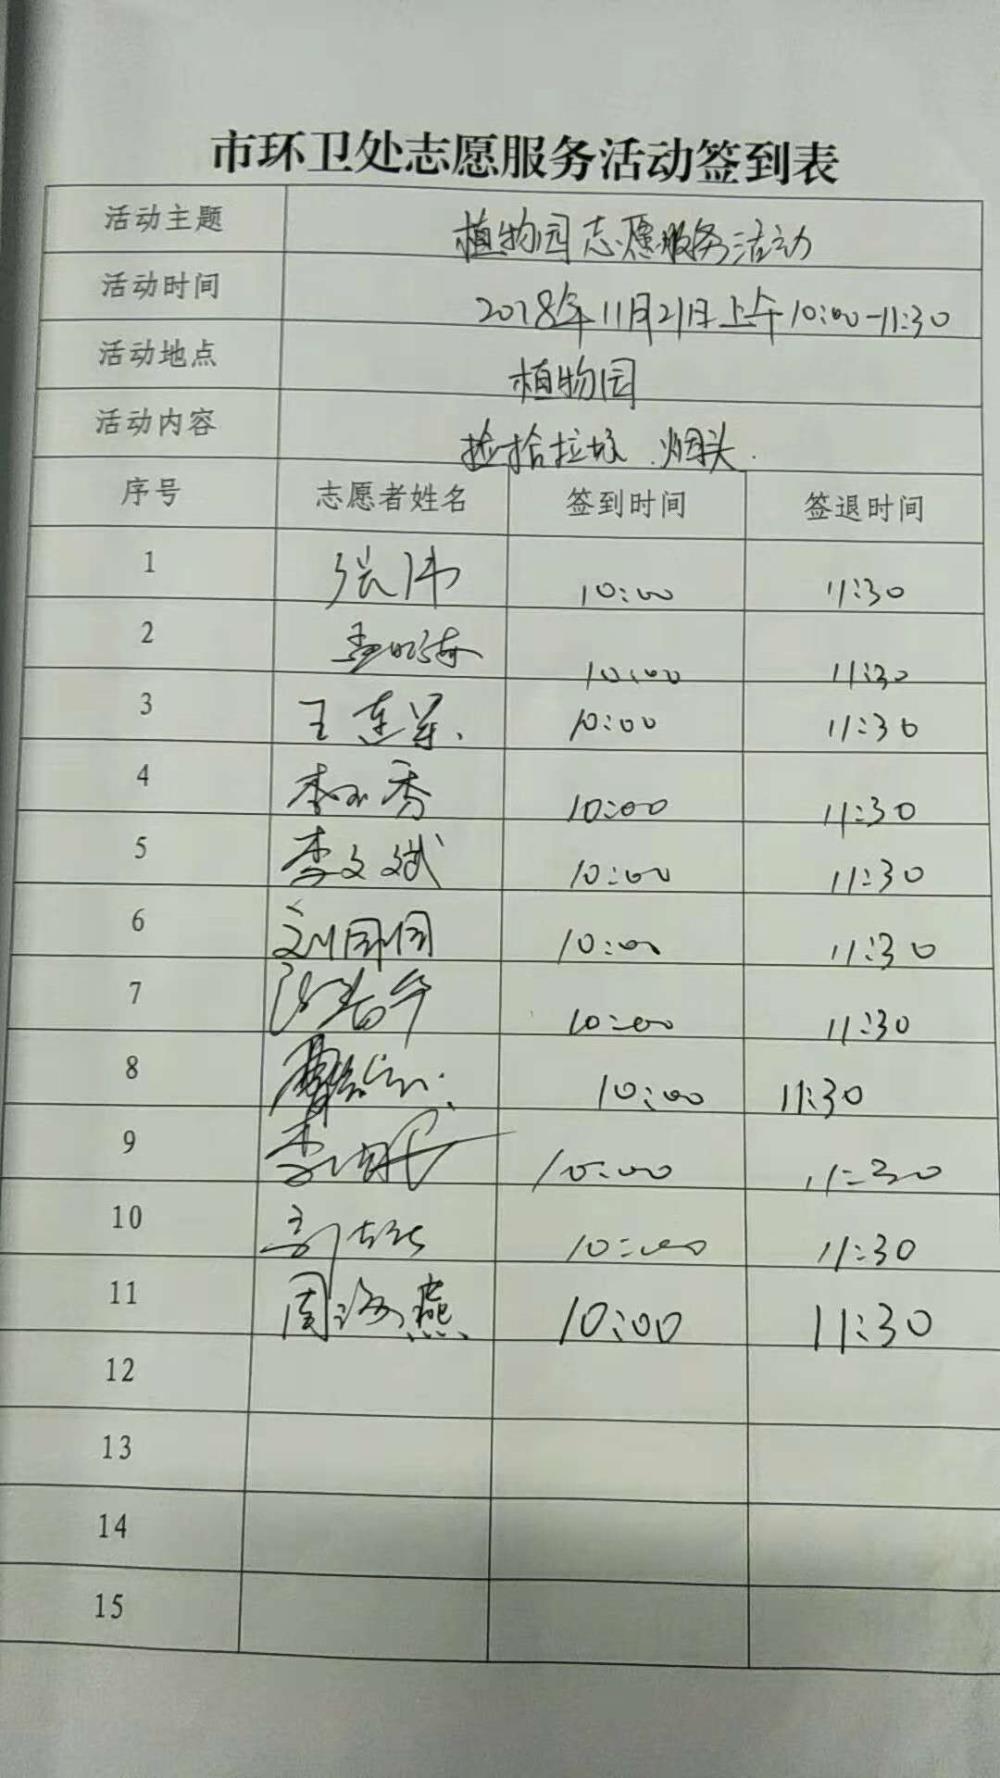 市环卫处志愿服务活动签到表
活动主题 植物园志愿服务活动
活动时间 2018年11月21日上午10:00-11:30
活动地点 植物园
活动内容 捡拾垃圾 烟头
序号 志愿者姓名 签到时间 签退时间
1 张伟 10:00 11:30
2 10:00 11:30
3 王莲军 10:00 11:30
4 李玉秀 10:00 11:30
5 李文斌 10:00 11:30
6 刘国国 10:00 11:30
7 10:00 11:30
8 10:00 11:30
9 李 10:00 11:30
10 10:00 11:30
11 周海燕 10:00 11:30
12
13
14
15